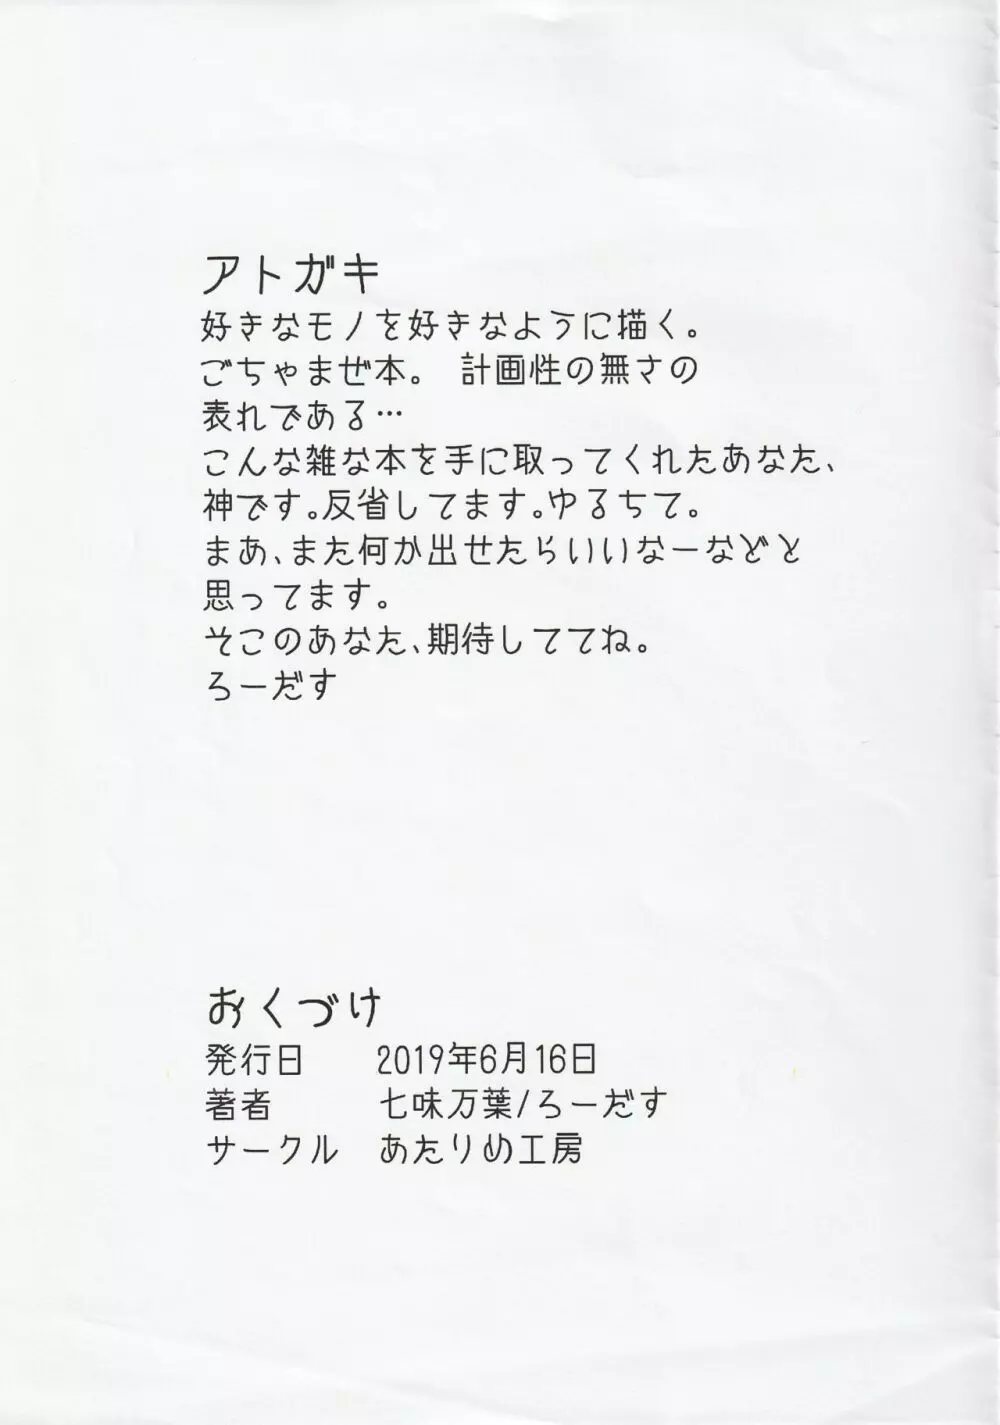 アトガキ
好きなモノを好きなように描く。
ごちゃまぜ本。　計画性の無さの
表れである…
こんな雑な本を手に取ってくれたあなた、
神です。反省してます。ゆるちて。
まあ、また何か出せたらいいなーなどと
思ってます。
そこのあなた、期待しててね。
ろーだす
おくづけ
発行日　　2019年6月16日
著者　　　七味万葉/ろーだす
サークル　あたりめ工房